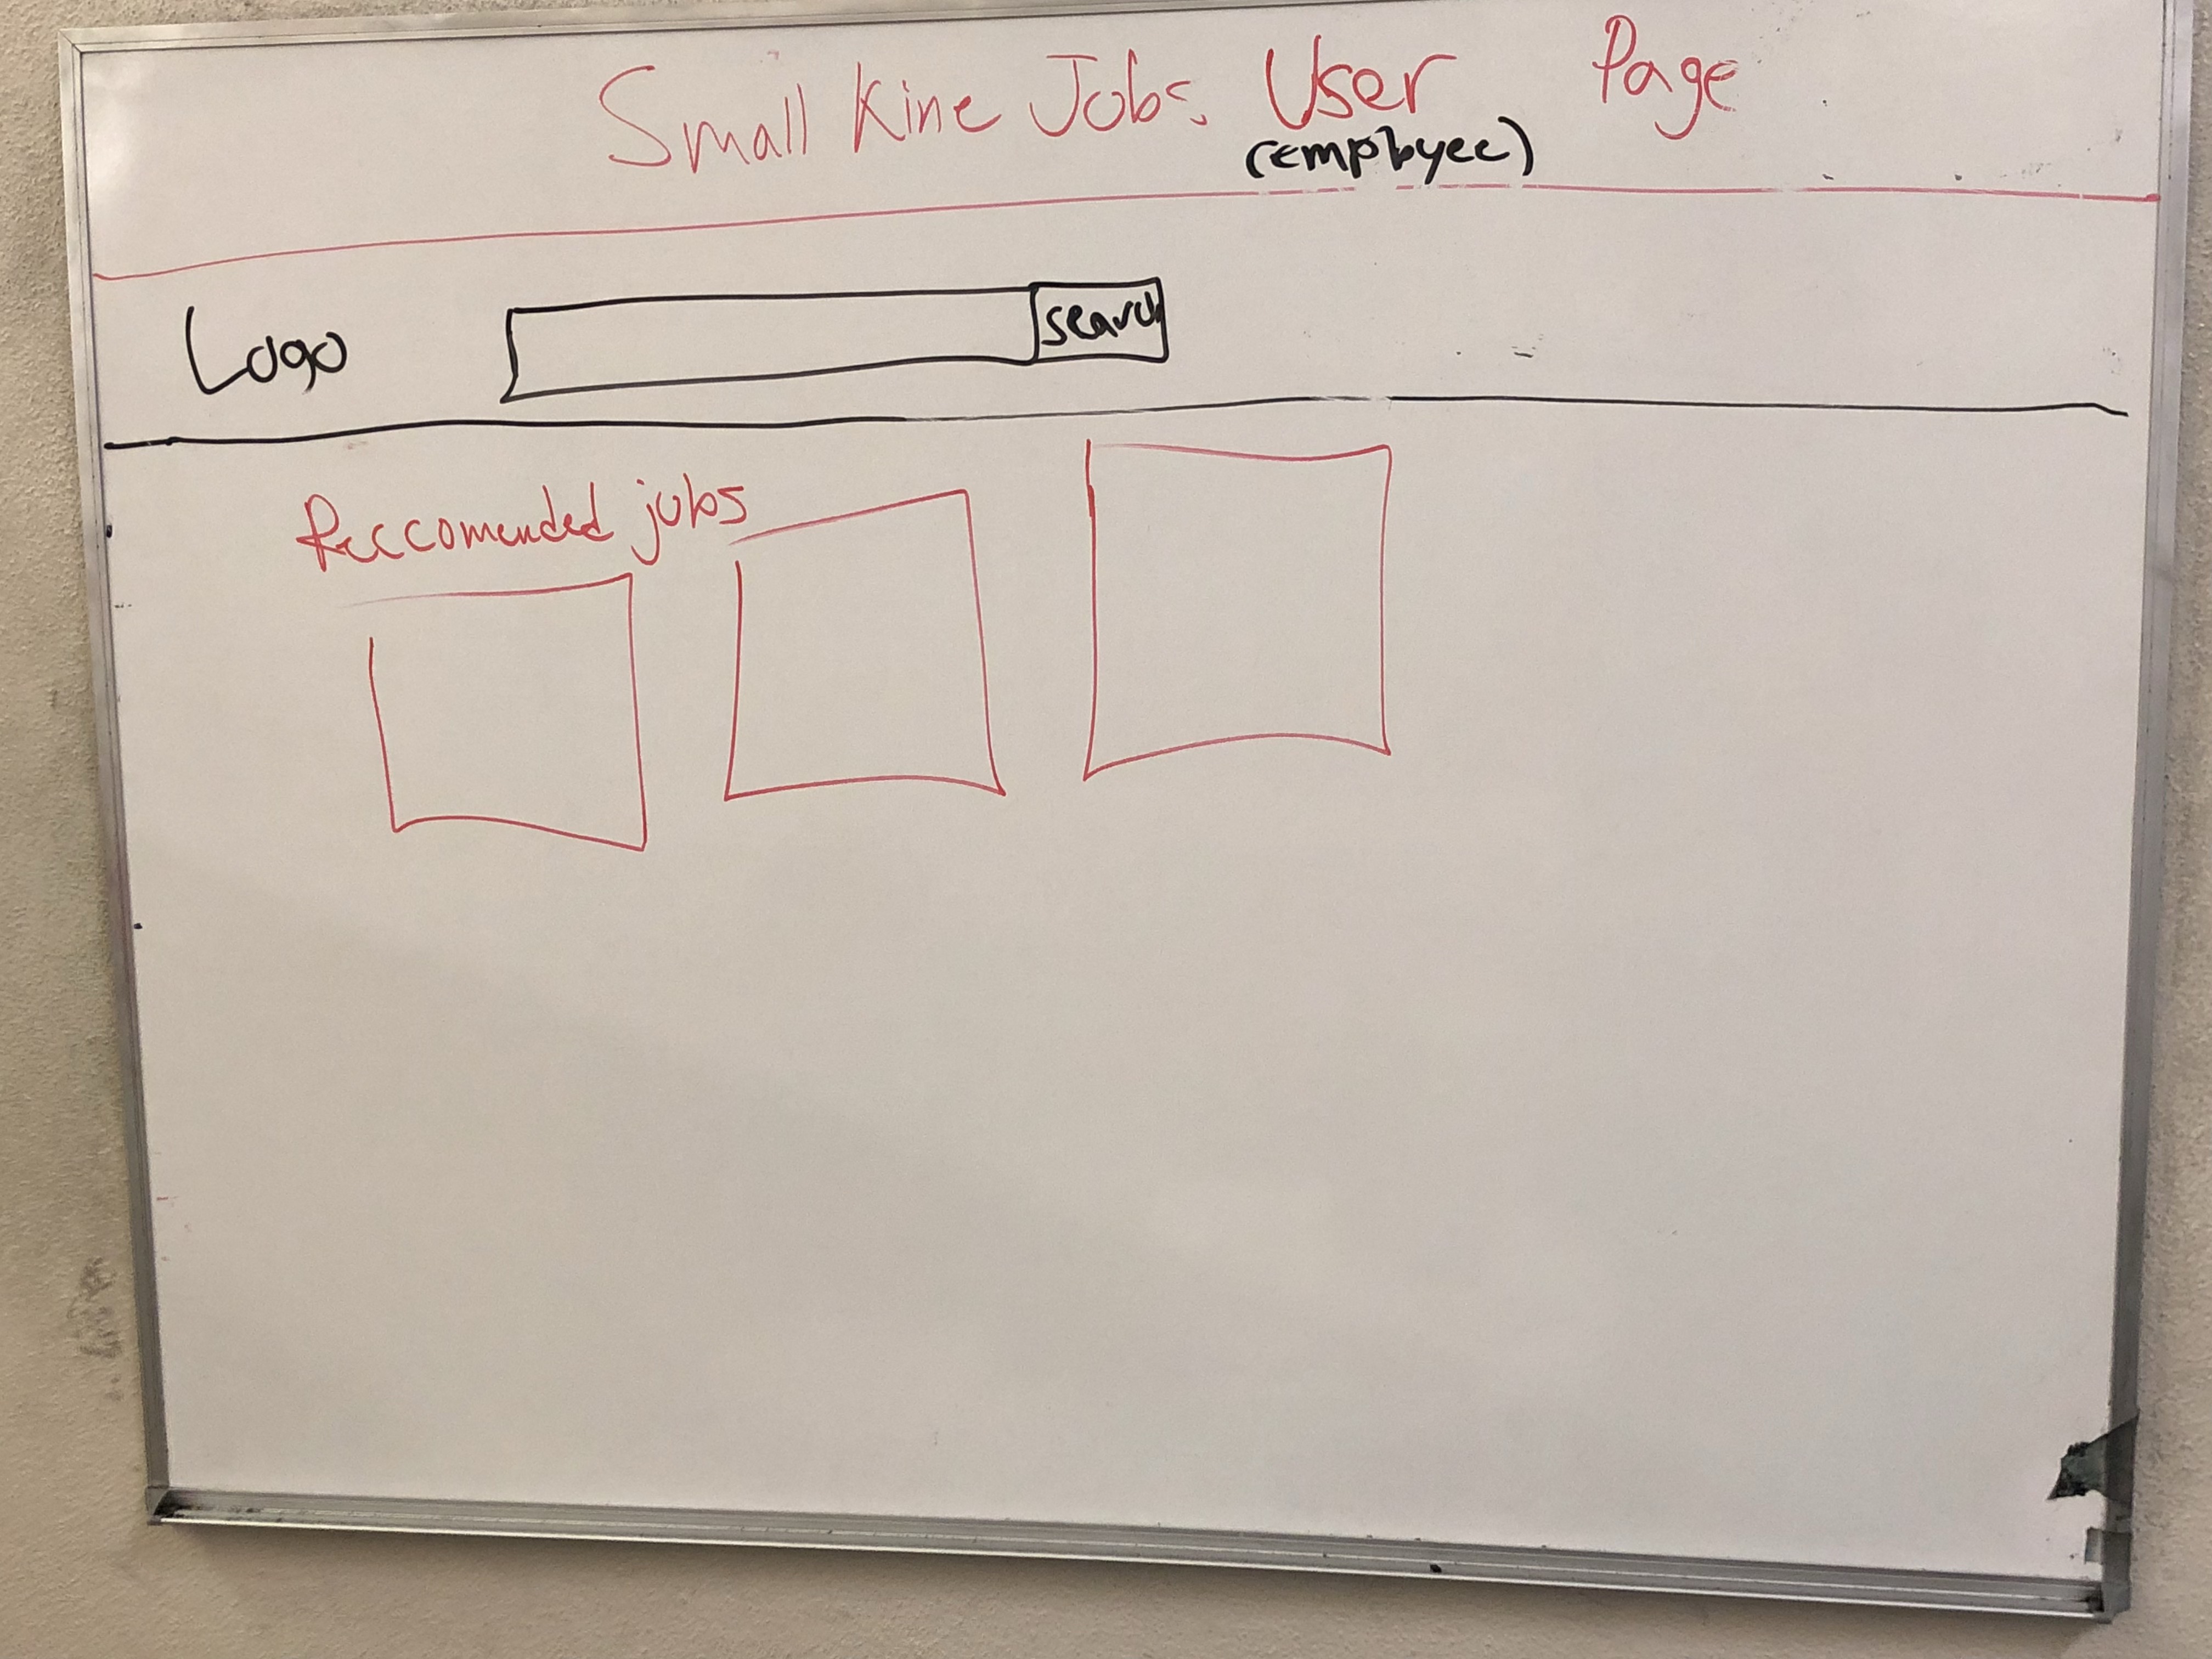 Small Kine Jobs. User Page
(employee)
Logo
search
Reccomended jobs